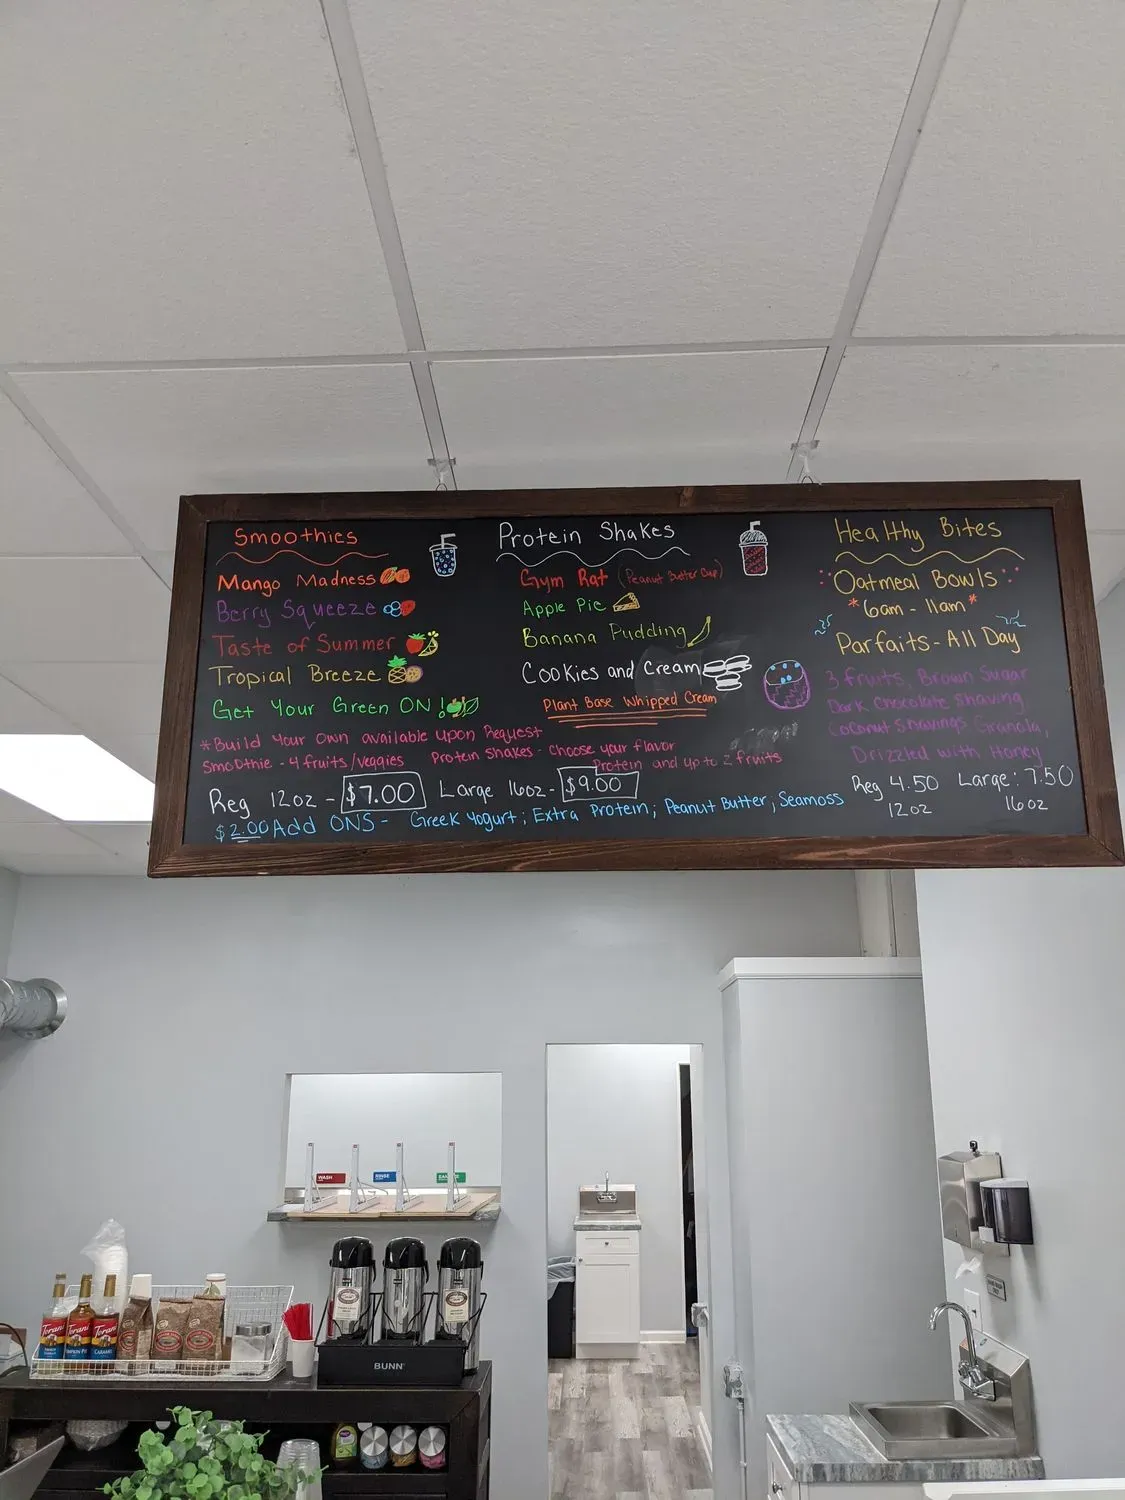 Smoothies
Mango Madness
Berry Squeeze
Taste of Summer
Tropical Breeze
Get Your Green ON!
*Build Your Own available upon Request
Smoothie - 4 fruits/veggies
Protein Shakes - choose your flavor
Protein and up to 2 fruits
Reg 12oz - $7.00 Large 16oz - $9.00
$2.00 Add ONS - Greek Yogurt; Extra Protein; Peanut Butter, Seamoss
Protein Shakes
Gym Rat (Peanut Butter Cup)
Apple Pie
Banana Pudding
Cookies and Cream
Plant Base Whipped Cream
Healthy Bites
Oatmeal Bowls
*6am - 11am*
Parfaits - All Day
3 fruits, Brown Sugar
Dark Chocolate Shaving
Coconut Shavings Granola,
Drizzled with Honey
Reg 4.50 Large: 7.50
12oz 16oz
WASH
RINSE
Torani
Torani
Torani
CARAMEL
BUNN